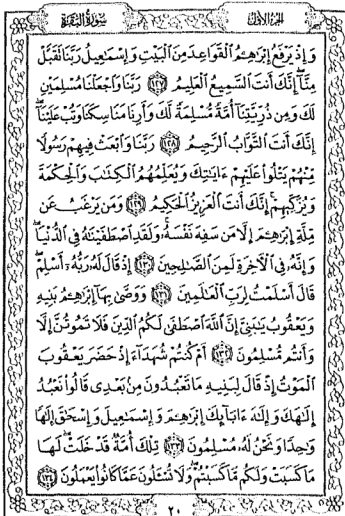 الجزء الأول سورة البقرة
وَإِذْ يَرْفَعُ إِبْرَٰهِـۧمُ ٱلْقَوَاعِدَ مِنَ ٱلْبَيْتِ وَإِسْمَٰعِيلُ رَبَّنَا تَقَبَّلْ
مِنَّآ إِنَّكَ أَنتَ ٱلسَّمِيعُ ٱلْعَلِيمُ ١٢٧ رَبَّنَا وَٱجْعَلْنَا مُسْلِمَيْنِ
لَكَ وَمِن ذُرِّيَّتِنَآ أُمَّةً مُّسْلِمَةً لَّكَ وَأَرِنَا مَنَاسِكَنَا وَتُبْ عَلَيْنَآ
إِنَّكَ أَنتَ ٱلتَّوَّابُ ٱلرَّحِيمُ ١٢٨ رَبَّنَا وَٱبْعَثْ فِيهِمْ رَسُولًا
مِّنْهُمْ يَتْلُوا۟ عَلَيْهِمْ ءَايَٰتِكَ وَيُعَلِّمُهُمُ ٱلْكِتَٰبَ وَٱلْحِكْمَةَ
وَيُزَكِّيهِمْ إِنَّكَ أَنتَ ٱلْعَزِيزُ ٱلْحَكِيمُ ١٢٩ وَمَن يَرْغَبُ عَن
مِّلَّةِ إِبْرَٰهِـۧمَ إِلَّا مَن سَفِهَ نَفْسَهُۥ وَلَقَدِ ٱصْطَفَيْنَٰهُ فِى ٱلدُّنْيَا
وَإِنَّهُۥ فِى ٱلْـَٔاخِرَةِ لَمِنَ ٱلصَّٰلِحِينَ ١٣٠ إِذْ قَالَ لَهُۥ رَبُّهُۥٓ أَسْلِمْ
قَالَ أَسْلَمْتُ لِرَبِّ ٱلْعَٰلَمِينَ ١٣١ وَوَصَّىٰ بِهَآ إِبْرَٰهِـۧمُ بَنِيهِ
وَيَعْقُوبُ يَٰبَنِىَّ إِنَّ ٱللَّهَ ٱصْطَفَىٰ لَكُمُ ٱلدِّينَ فَلَا تَمُوتُنَّ إِلَّا
وَأَنتُم مُّسْلِمُونَ ١٣٢ أَمْ كُنتُمْ شُهَدَآءَ إِذْ حَضَرَ يَعْقُوبَ
ٱلْمَوْتُ إِذْ قَالَ لِبَنِيهِ مَا تَعْبُدُونَ مِنۢ بَعْدِى قَالُوا۟ نَعْبُدُ
إِلَٰهَكَ وَإِلَٰهَ ءَابَآئِكَ إِبْرَٰهِـۧمَ وَإِسْمَٰعِيلَ وَإِسْحَٰقَ إِلَٰهًا
وَٰحِدًا وَنَحْنُ لَهُۥ مُسْلِمُونَ ١٣٣ تِلْكَ أُمَّةٌ قَدْ خَلَتْ لَهَا
مَا كَسَبَتْ وَلَكُم مَّا كَسَبْتُمْ وَلَا تُسْـَٔلُونَ عَمَّا كَانُوا۟ يَعْمَلُونَ ١٣٤
٢٠